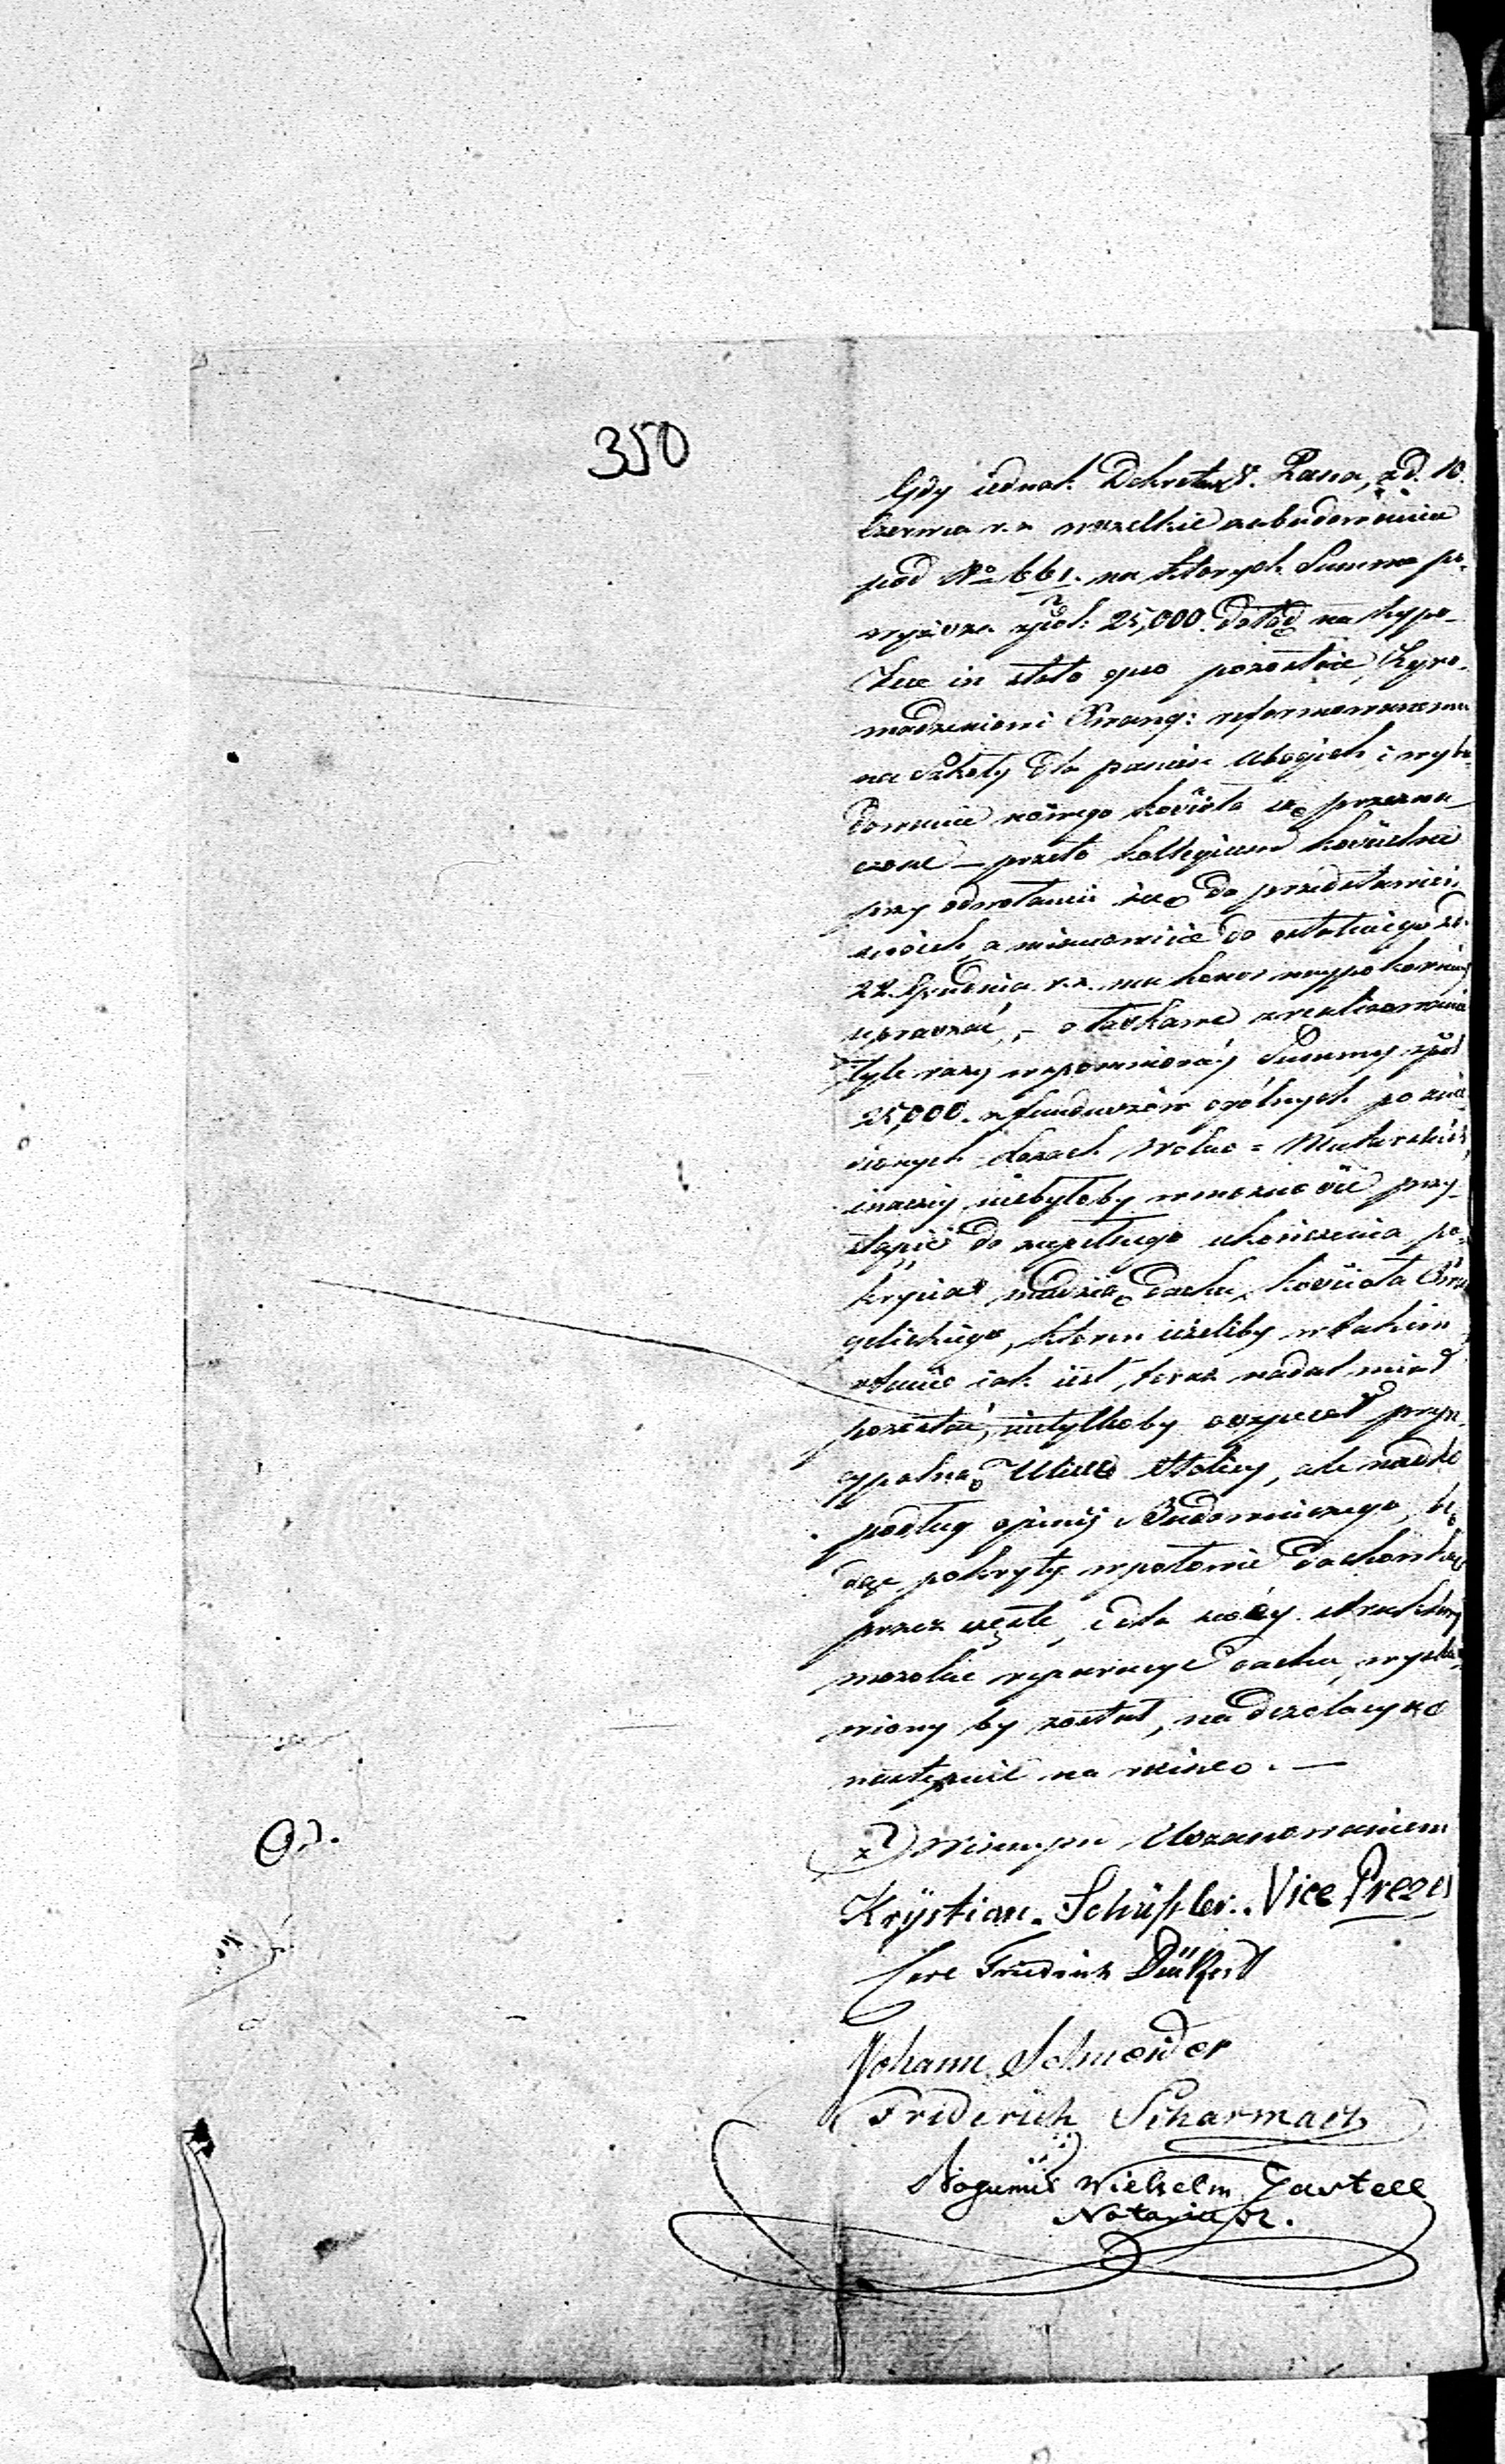 350
Gdy iednak Dekretem Pana, z d. 10.
Czerwca r. z wszelkie zabudowania
pod No 661. na których Summa po-
wyższa złpol: 25,000. dotąd na hypo-
tece in statu quo pozostaie, Zgro-
madzeniowi Ewang: reformowanemu
na Szkoły dla panien ubogich i wybu-
dowanie nowego kościoła są przezna-
czone — przeto Kollegium kościelne
przy odwołaniu się do przedstawień
swoich, a mianowicie do ostatniego z d.
22. Grudnia r. z. ma honor naypokorniey
upraszać, – o łaskawe zrealizowanie
tyle razy wspomnioney Summy złpol
25,000. z funduszów ogólnych po znie-
sionych Lożach Wolno = Mularskich,
inaczey niebyłoby w możności przy-
stąpić do zupełnego ukończenia po-
krycia miedzią dachu, kościoła Ewan
gelickiego, który ieżeliby w takim
stanie iak iest, teraz nadal miał
pozostać, nietylkoby oszpecał pryn-
cypalną Ulicę Stolicy, ale nadto
podług opinij Budowniczego, bę-
dąc pokryty w połowie dachówką
przez częste, i dla swoiey struktury
mozolne reparacye dachu, wysta-
wiony by został, na dezolacyą
następnie na ruinę. —
Z Winnym Uszanowaniem
Krÿstian Schüßler. Vice Prezes
Carl Friedrich Dückert
Johann Schneider
Friderich Scharmach
Bogumił Wilhelm Gastell
Notariusz.